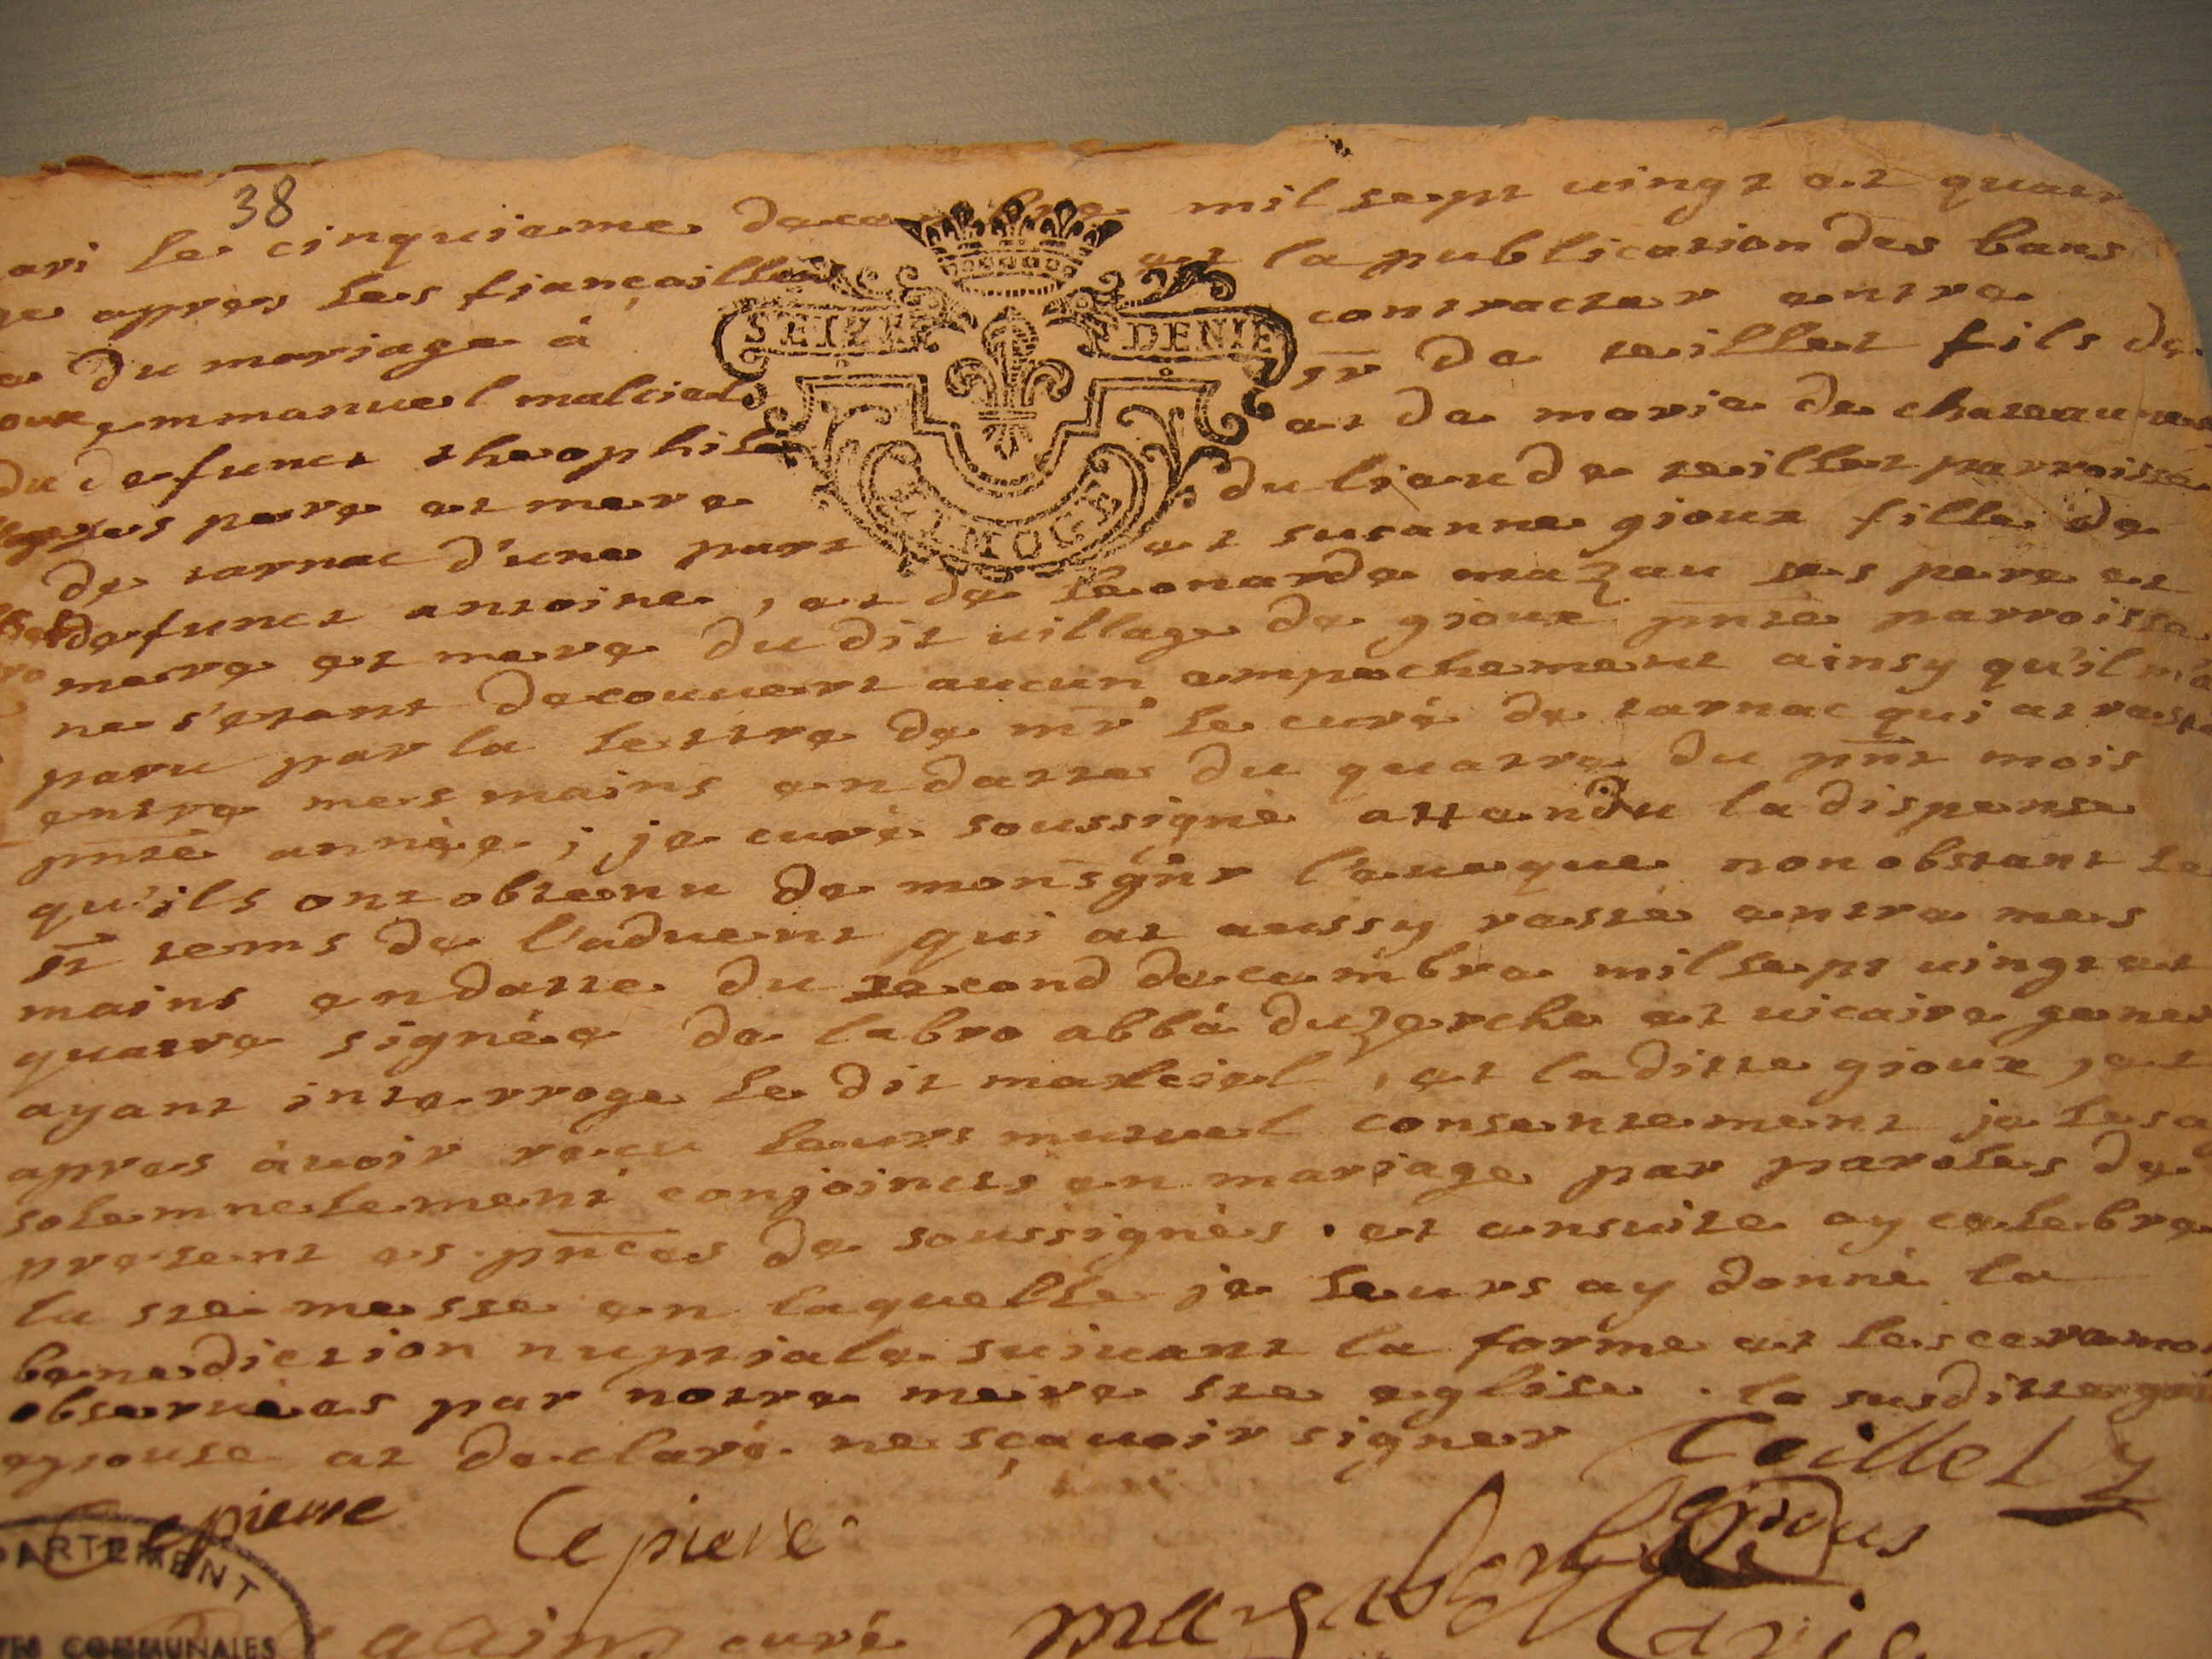 38
le cinquieme decembre mil sept vingt et quatre
apres les fiançailles et la publication des bans
du mariage à contracter entre
emmanuel malciel sr de teillet fils de
du defunct theophile et de marie de
ses pere et mere du lieu de teillet parroisse
de tarnac d'une part et susanne gioux fille de
defunct antoine, et de leonarde mazau ses pere et
mere et mere du dit village de gioux pnte parroisse
ne s'etant decouvert aucun empechement ainsy qu'il m'a
paru par la lettre de mr le curé de tarnac qui at resté
entre mes mains en datte du quatre du pnt mois
pnte année ; je curé soussigné attendu la dispense
qu'ils ont obtenu de monsgnr l'eveque nonobstant le
st tems de l'advent qui at aussy resté entre mes
mains en datte du second decembre mil sept vingt et
quatre signée de labro abbé duzerche et vicaire gener
ayant interroge le dit malciel, et la ditte gioux, et
apres àvoir recu leurs mutuel consentement je les ay
solemnelement conjoincts en mariage par paroles de
present es pnces de soussignés . et ensuite ay celebre
la ste messe en laquelle je leurs ay donné la
benediction nuptiale suivant la forme et les ceremo
observées par notre mere ste eglise . la susditte
epouse at declaré ne sçavoir signer Teillet
Lepierre Lepiere
curé
SEIZE DENIE
LIMOGE
PARTEMENT
COMMUNALES